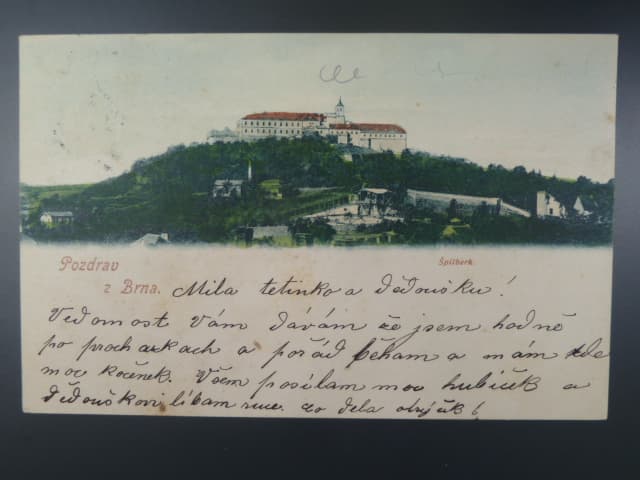 Pozdrav
z Brna.
Špilberk.
Mila tetinko a děďoušku!
Vedomost Vám dávám že jsem hodně
po prochazkach a pořád běham a mám zde
moc koček. Všem posílam moc hubiček a
děďouškovi líbam ruce. co dela